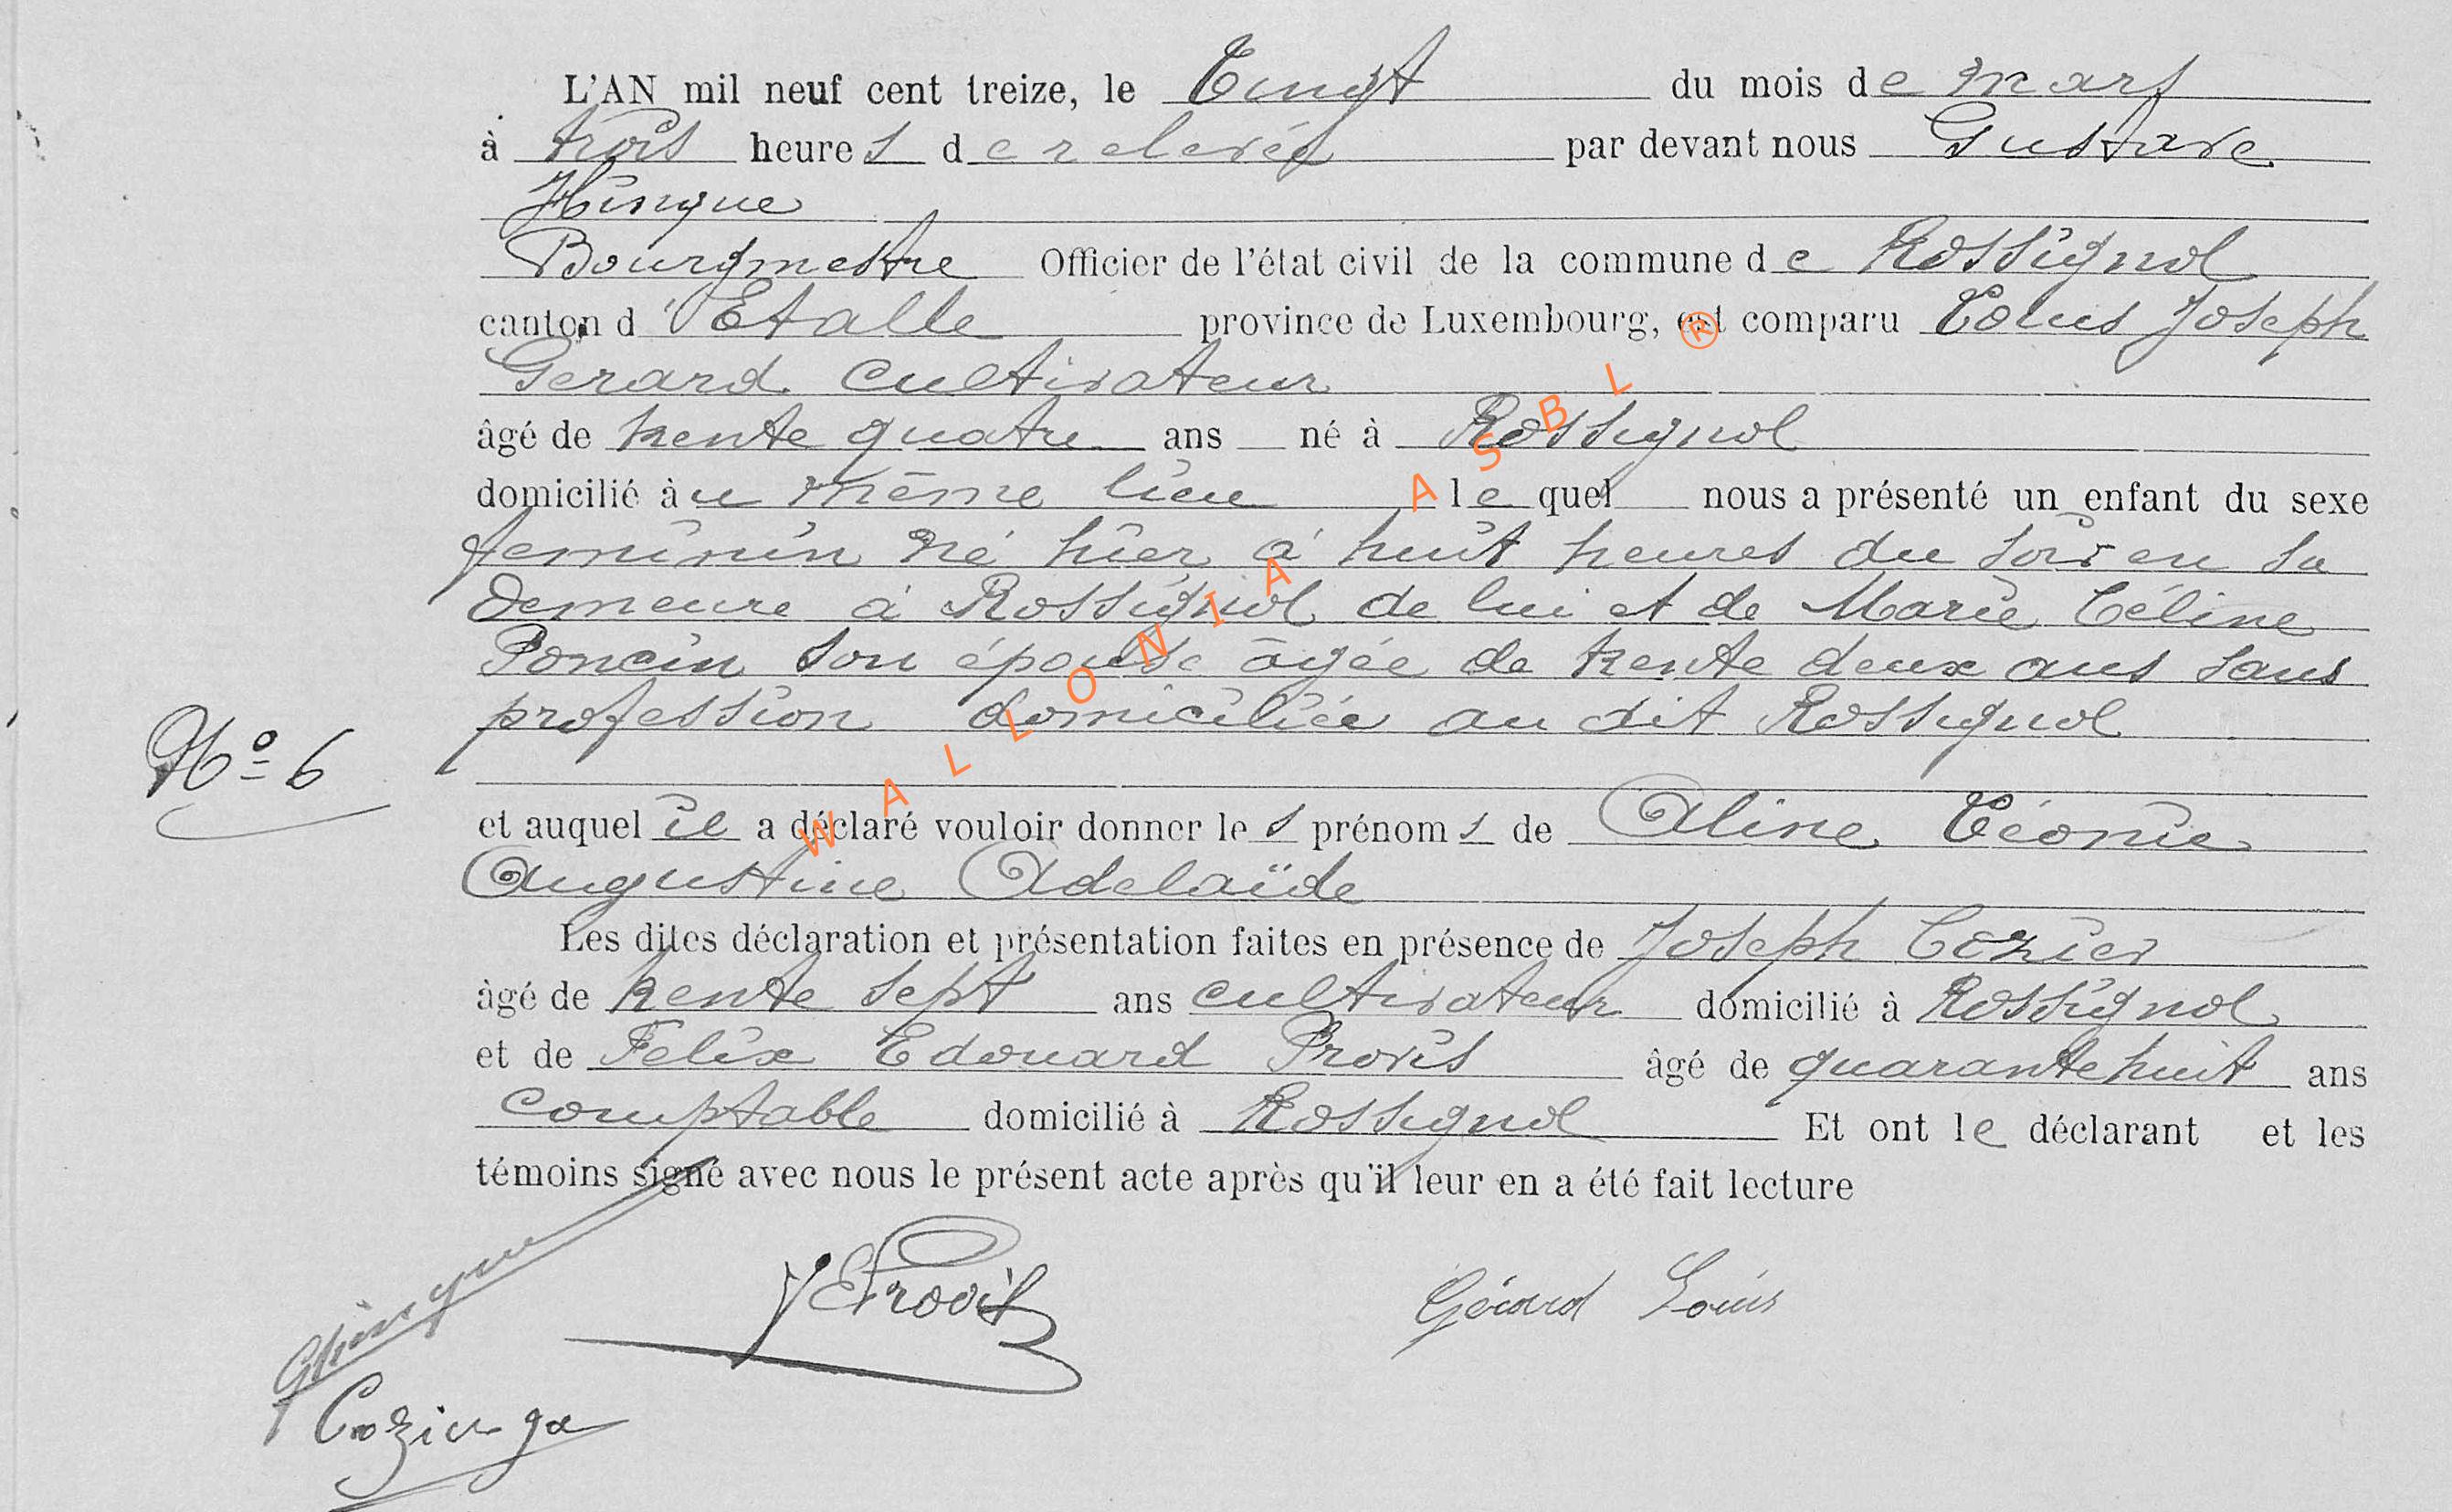 L'AN mil neuf cent treize, le Vingt du mois de mars
à trois heures de relevée par devant nous Gustave
Hinque
Bourgmestre Officier de l'état civil de la commune de Rossignol
canton d'Etalle province de Luxembourg, est comparu Louis Joseph
Gerard cultivateur
âgé de trente quatre ans né à Rossignol
domicilié au même lieu lequel nous a présenté un enfant du sexe
feminin né hier à huit heures du soir en sa
demeure à Rossignol de lui et de Marie Céline
Poncin son épouse âgée de trente deux ans sans
profession domiciliée au dit Rossignol
No 6
et auquel il a déclaré vouloir donner les prénoms de Aline Léonie
Augustine Adelaïde
Les dites déclaration et présentation faites en présence de Joseph Cozier
âgé de trente sept ans cultivateur domicilié à Rossignol
et de Felix Edouard Provis âgé de quarante huit ans
comptable domicilié à Rossignol Et ont le déclarant et les
témoins signé avec nous le présent acte après qu'il leur en a été fait lecture
GHinque
FEProvis
Gérard Louis
Cozier
WALLONIA ASBL ®